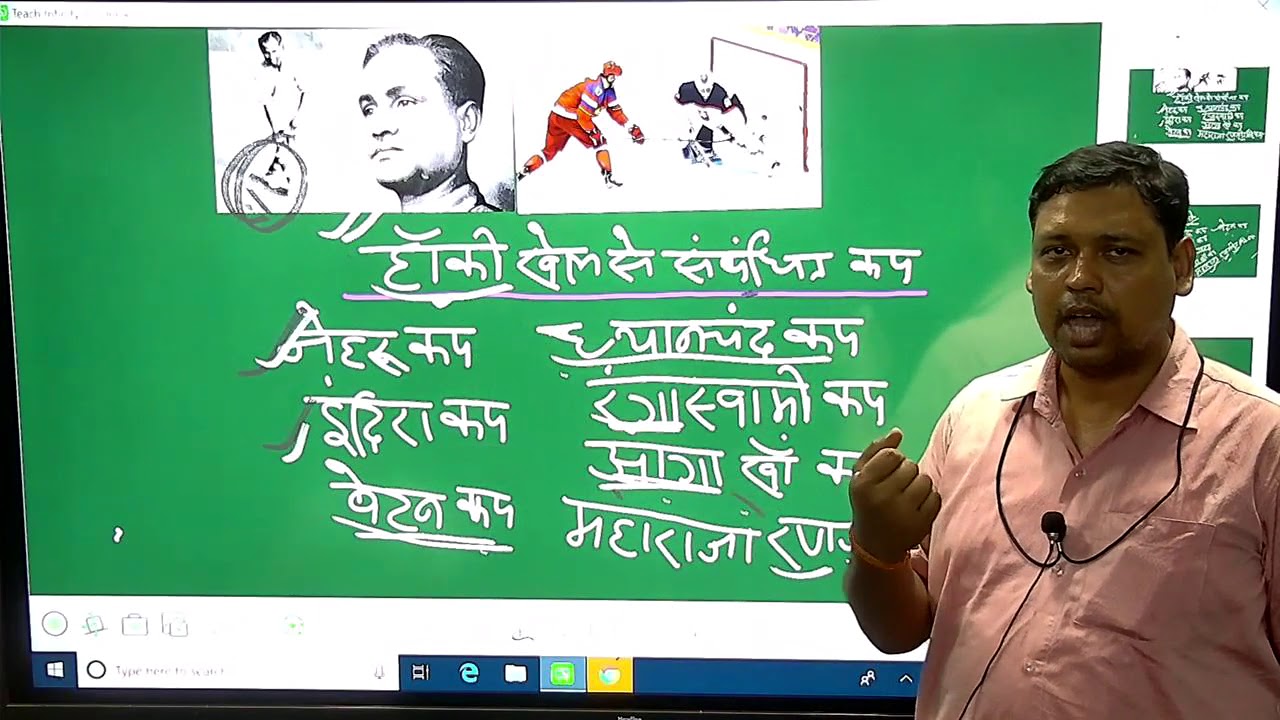 Teach Infinity
हॉकी खेल से संबंधित कप
नेहरू कप ध्यानचंद कप
इंदिरा कप रंगास्वामी कप
बेटन कप आगा खाँ
महाराजा
Type here to search